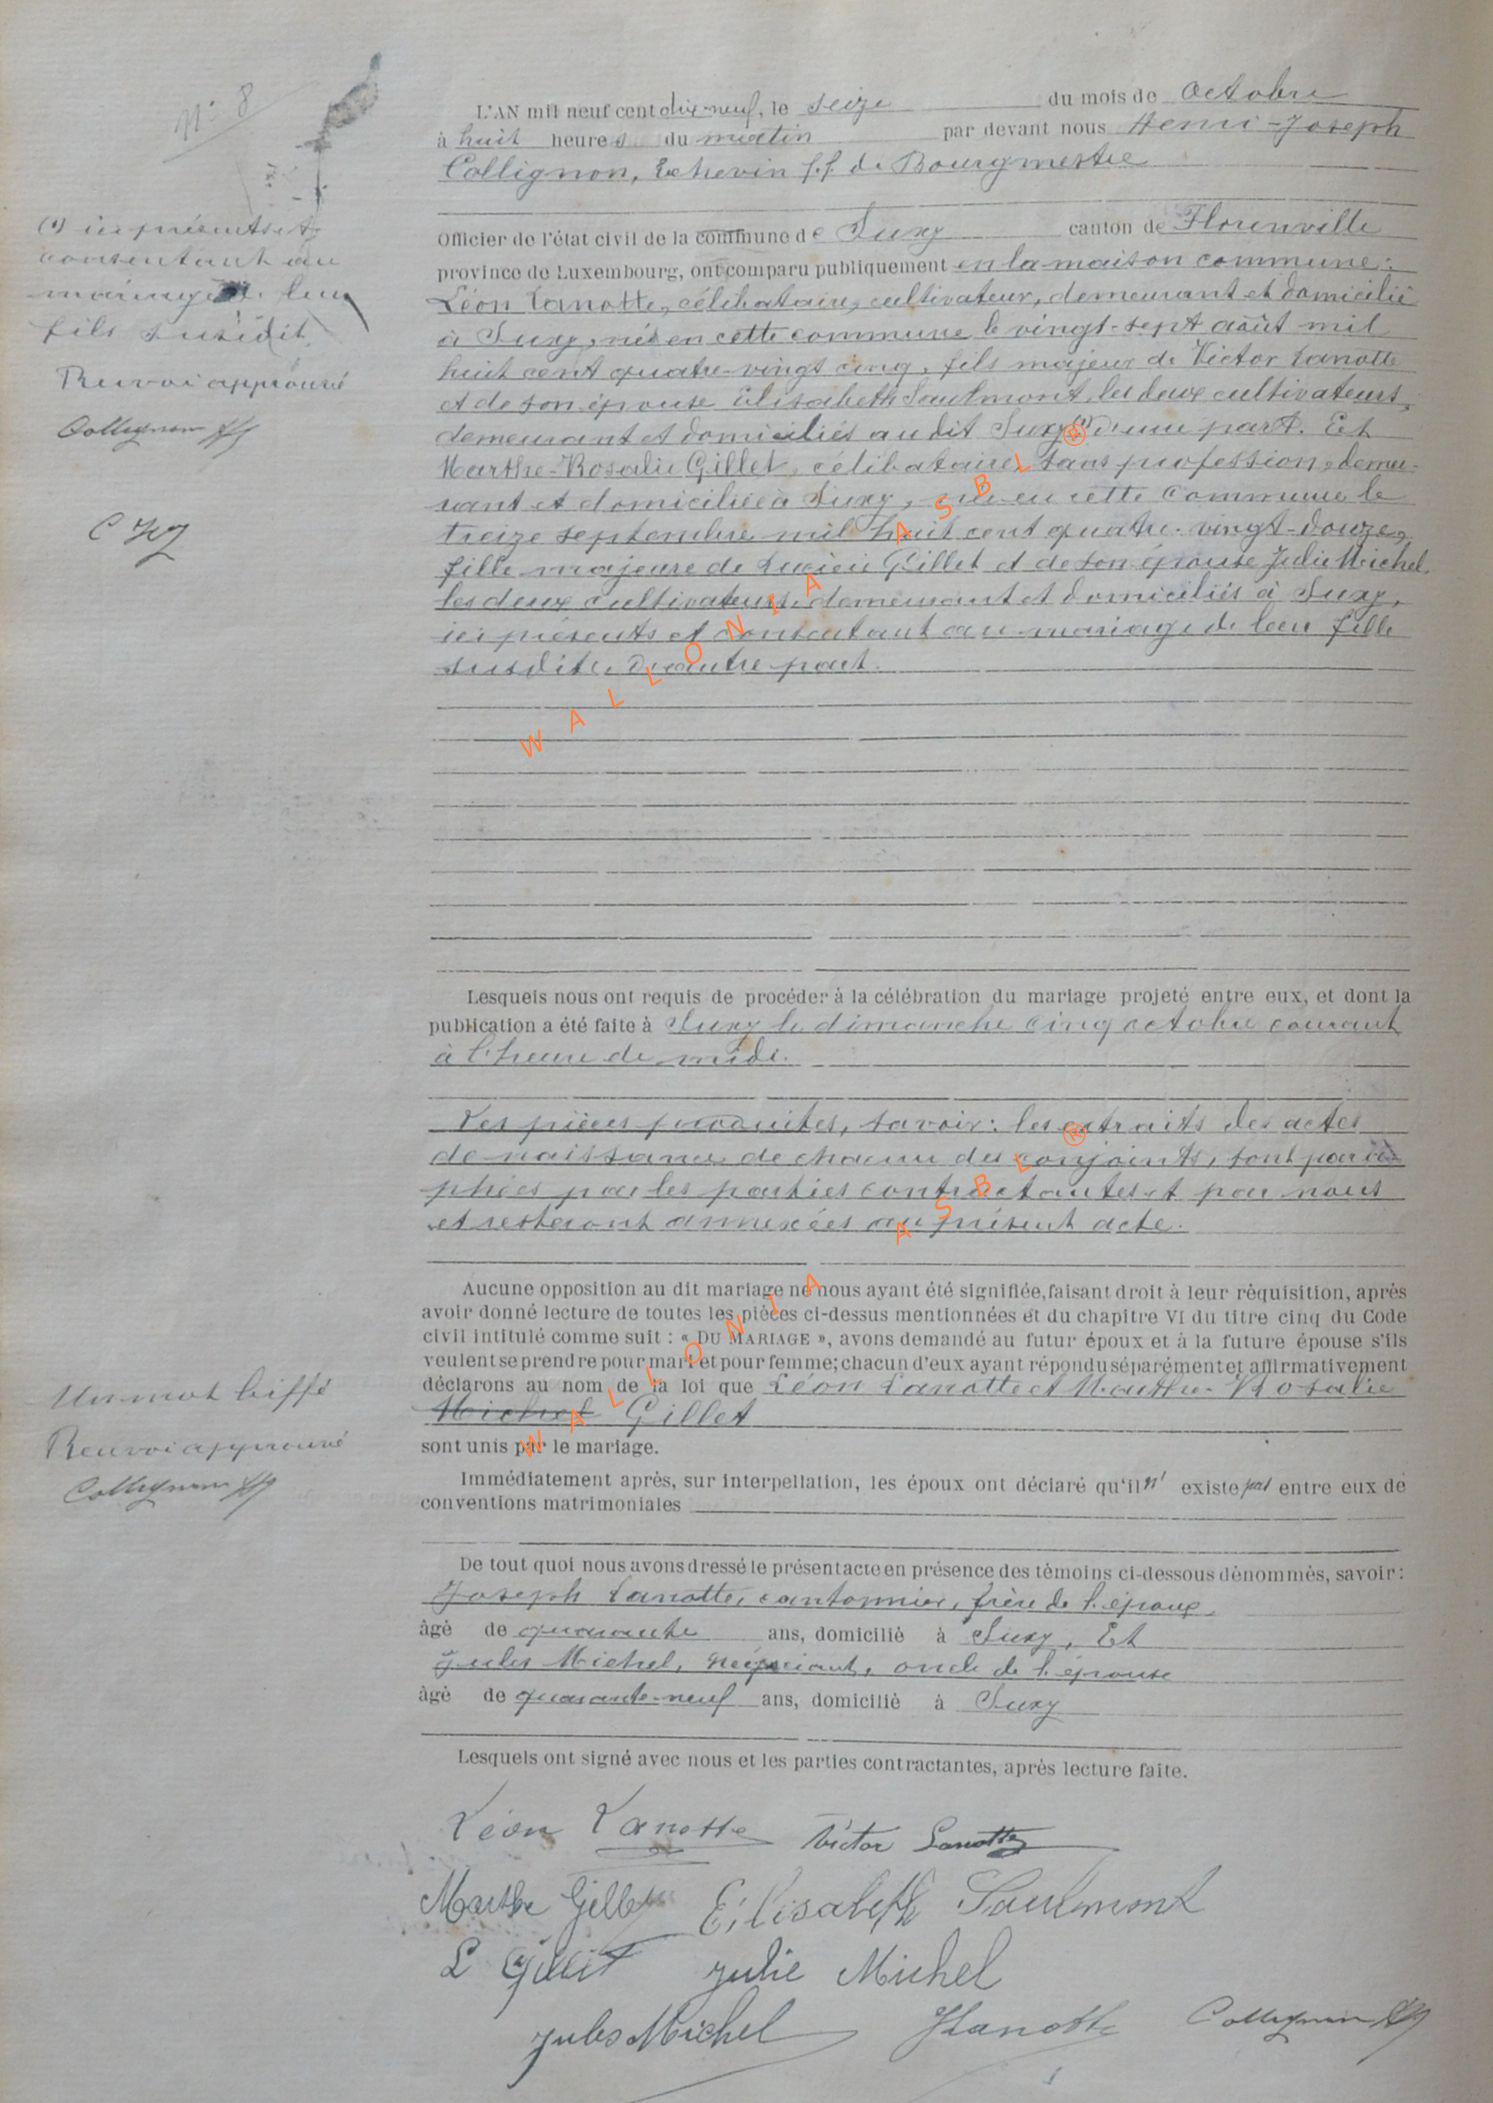 N° 8
L'AN mil neuf cent dix-neuf, le seize du mois de Octobre
à huit heures du matin par devant nous Henri-Joseph
Collignon, Echevin f.f. de Bourgmestre
Officier de l'état civil de la commune de Suxy canton de Florenville
province de Luxembourg, ont comparu publiquement en la maison commune:
Léon Lanotte, célibataire, cultivateur, demeurant et domicilié
à Suxy, né en cette commune le vingt-sept août mil
huit cent quatre-vingt cinq, fils majeur de Victor Lanotte
et de son épouse Elisabeth Saulmont, les deux cultivateurs,
demeurant et domiciliés au dit Suxy (1) D'une part. Et
Marthe-Rosalie Gillet, célibataire, sans profession, demeu-
rant et domiciliée à Suxy, née en cette commune le
treize septembre mil huit cent quatre-vingt-douze,
fille majeure de Lucien Gillet et de son épouse Julie Michel,
les deux cultivateurs, demeurant et domiciliés à Suxy,
ici présents et consentant au mariage de leur fille
susdite, D'autre part.
(1) ici présents et
consentant au
mariage de leur
fils susdit
Renvoi approuvé
Collignon HJ
C HJ
Lesquels nous ont requis de procéder à la célébration du mariage projeté entre eux, et dont la
publication a été faite à Suxy le dimanche cinq octobre courant
à l'heure de midi.
Les pièces produites, savoir: les extraits des actes
de naissance de chacun des conjoints, sont para-
phées par les parties contractantes et par nous
et resteront annexées au présent acte.
Aucune opposition au dit mariage ne nous ayant été signifiée, faisant droit à leur réquisition, après
avoir donné lecture de toutes les pièces ci-dessus mentionnées et du chapitre VI du titre cinq du Code
civil intitulé comme suit : « DU MARIAGE », avons demandé au futur époux et à la future épouse s'ils
veulent se prendre pour mari et pour femme; chacun d'eux ayant répondu séparément et affirmativement
déclarons au nom de la loi que Léon Lanotte et Marthe-Rosalie
Michel Gillet
sont unis par le mariage.
Un mot biffé
Renvoi approuvé
Collignon HJ
Immédiatement après, sur interpellation, les époux ont déclaré qu'il n' existe pas entre eux de
conventions matrimoniales
De tout quoi nous avons dressé le présent acte en présence des témoins ci-dessous dénommés, savoir:
Joseph Lanotte, cantonnier, frère de l'époux,
âgé de quarante ans, domicilié à Suxy, Et
Jules Michel, négociant, oncle de l'épouse
âgé de quarante-neuf ans, domicilié à Suxy
Lesquels ont signé avec nous et les parties contractantes, après lecture faite.
Léon Lanotte Victor Lanotte
Marthe Gillet Elisabeth Saulmont
L Gillet Julie Michel
Jules Michel J Lanotte Collignon HJ
WALLONIA ASBL ®
WALLONIA ASBL ®